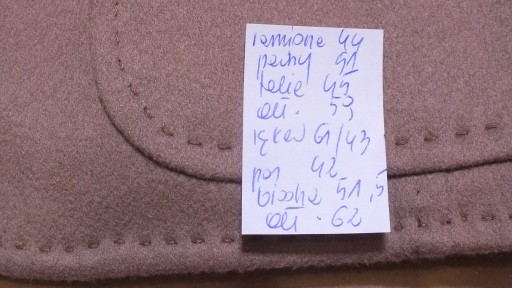 ramiona 44
pachy 51
talia 45
dł. 53
rękaw 61/43
pas 42
biodra 51,5
dł. 62